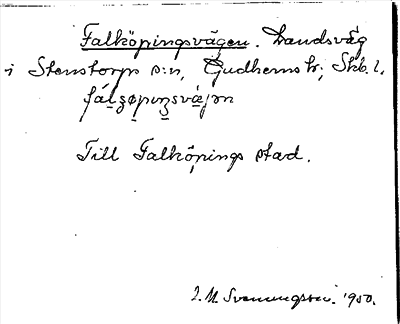 Falköpingsvägen. Landsväg
i Stenstorps s:n, Gudhems hd; Skb. l.
Till Falköpings stad.
I. M. Svenungsson. 1950.